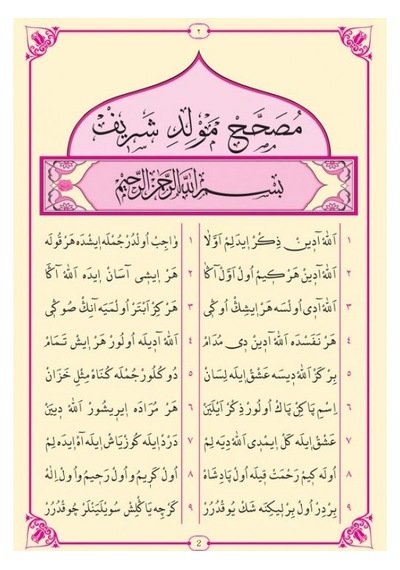 ٢
مُصَحَّحْ مَوْلِدِ شَرِيفْ
بِسْمِ اللهِ الرَّحْمٰنِ الرَّحِيمِ
١ اَللهْ آدِينْ ذِكْرْ اِيدَلِمْ اَوَّلَا وَاجِبْ اُولْدُرْ جُمْلَه اِيشْدَه هَرْ قُولَه
٢ اَللهْ آدِينْ هَرْ كِيمْ اُولْ اَوَّلْ آكَا هَرْ اِيشِى آسَانْ اِيدَه اَللهْ آكَا
٣ اَللهْ آدِى اُولْسَه هَرْ اِيشِكْ اُوكِى هَرْ كِزْ اَبْتَرْ اُولْمَيَه آنِكْ صُوكِى
٤ هَرْ نَفَسْدَه اَللهْ آدِينْ دِى مُدَامْ اَللهْ آدِيلَه اُولُورْ هَرْ اِيشْ تَمَامْ
٥ بِرْ كَزْ اَللهْ دِيسَه عَشْقْ اِيلَه لِسَانْ دُوكُلُورْ جُمْلَه كُنَاهْ مِثْلِ خَزَانْ
٦ اِسْمِ پَاكِنْ پَاكْ اُولُورْ ذِكْرْ اَيْلَيَنْ هَرْ مُرَادَه اِيرِيشُورْ اَللهْ دِييَنْ
٧ عَشْقْ اِيلَه كَلْ اِيمْدِى اَللهْ دِيَه لِمْ دَرْدْ اِيلَه كُوزْ يَاشْ اِيلَه آهْ اِيدَه لِمْ
٨ اُولَه كِيمْ رَحْمَتْ قِيلَه اُولْ پَادِشَاهْ اُولْ كَرِيمْ وُ اُولْ رَحِيمْ وُ اُولْ اِلٰهْ
٩ بِرْدِرْ اُولْ بِرْلِيكِنَه شَكْ يُوقْدُرُرْ كَرْچِه يَاكْلِشْ سُويْلَيَنْلَرْ چُوقْدُرُرْ
2